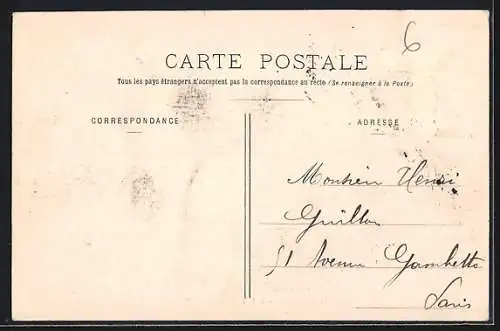 6
CARTE POSTALE
Tous les pays étrangers n'acceptent pas la correspondance au recto (Se renseigner à la Poste)
CORRESPONDANCE
ADRESSE
Monsieur Henri
Guillon
51 Avenue Gambetta
Paris